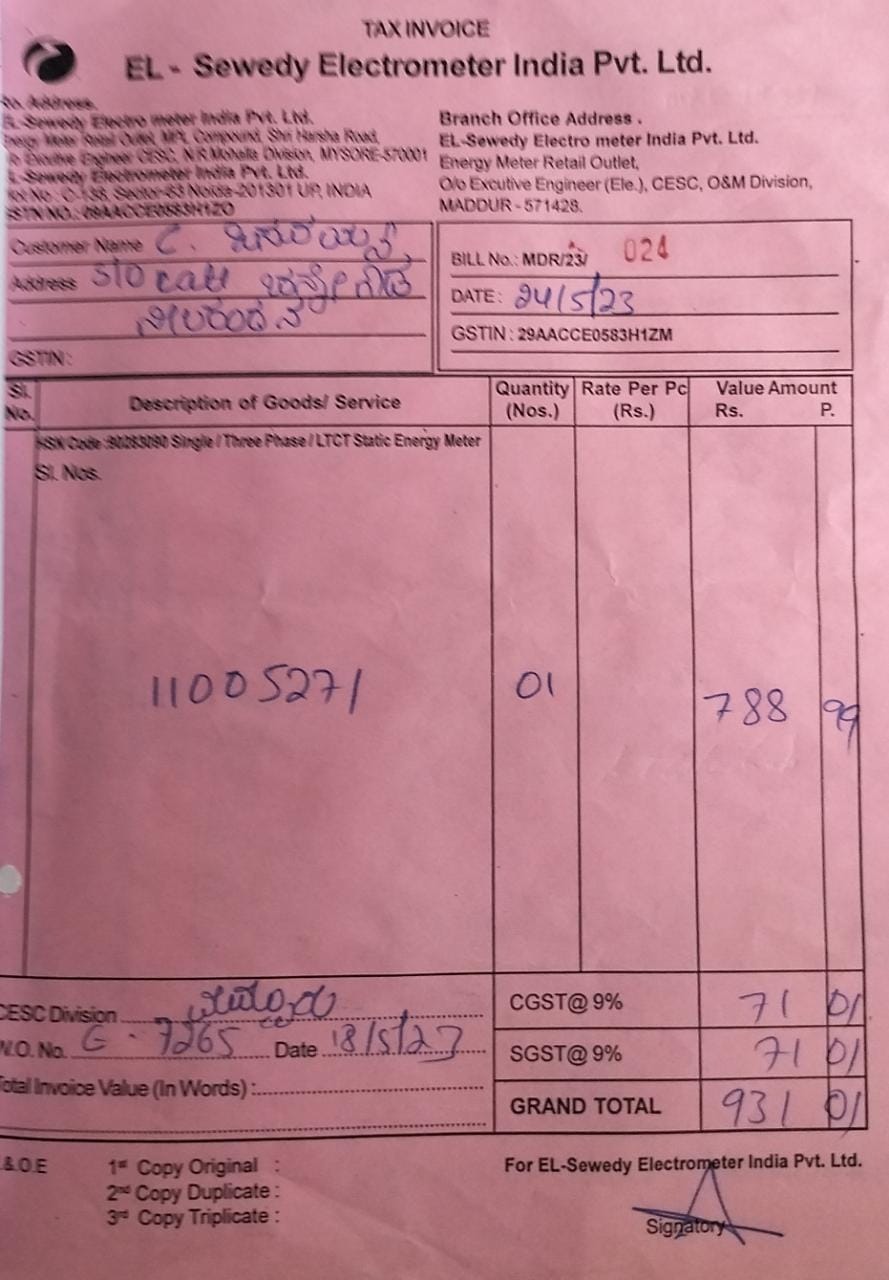 TAX INVOICE
EL - Sewedy Electrometer India Pvt. Ltd.
Ro. Address.
EL-Sewedy Electro meter India Pvt. Ltd.
Energy Meter Retail Outlet, MPL Compound, Shri Harsha Road,
O/o Executive Engineer CESC, N.R Mohalla Division, MYSORE-570001
EL-Sewedy Electrometer India Pvt. Ltd.
Plot No : C-138, Sector-63 Noida-201301 UP, INDIA
GSTN NO.: 29AACCE0583H1ZO
Branch Office Address .
EL-Sewedy Electro meter India Pvt. Ltd.
Energy Meter Retail Outlet,
O/o Excutive Engineer (Ele.), CESC, O&M Division,
MADDUR - 571428.
Customer Name C.
Address S/O
GSTIN :
BILL No.: MDR/23/ 024
DATE : 24/5/23
GSTIN : 29AACCE0583H1ZM
Sl. No. Description of Goods/ Service Quantity (Nos.) Rate Per Pc (Rs.) Value Amount Rs. P.
HSN Code :90283090 Single / Three Phase / LTCT Static Energy Meter
Sl. Nos.
11005271 01 788 99
CESC Division
CGST@ 9% 71 01
W.O. No. G - 7265 Date 18/5/23
SGST@ 9% 71 01
Total Invoice Value (In Words) :
GRAND TOTAL 931 01
E.&.O.E
1st Copy Original :
2nd Copy Duplicate :
3rd Copy Triplicate :
For EL-Sewedy Electrometer India Pvt. Ltd.
Signatory